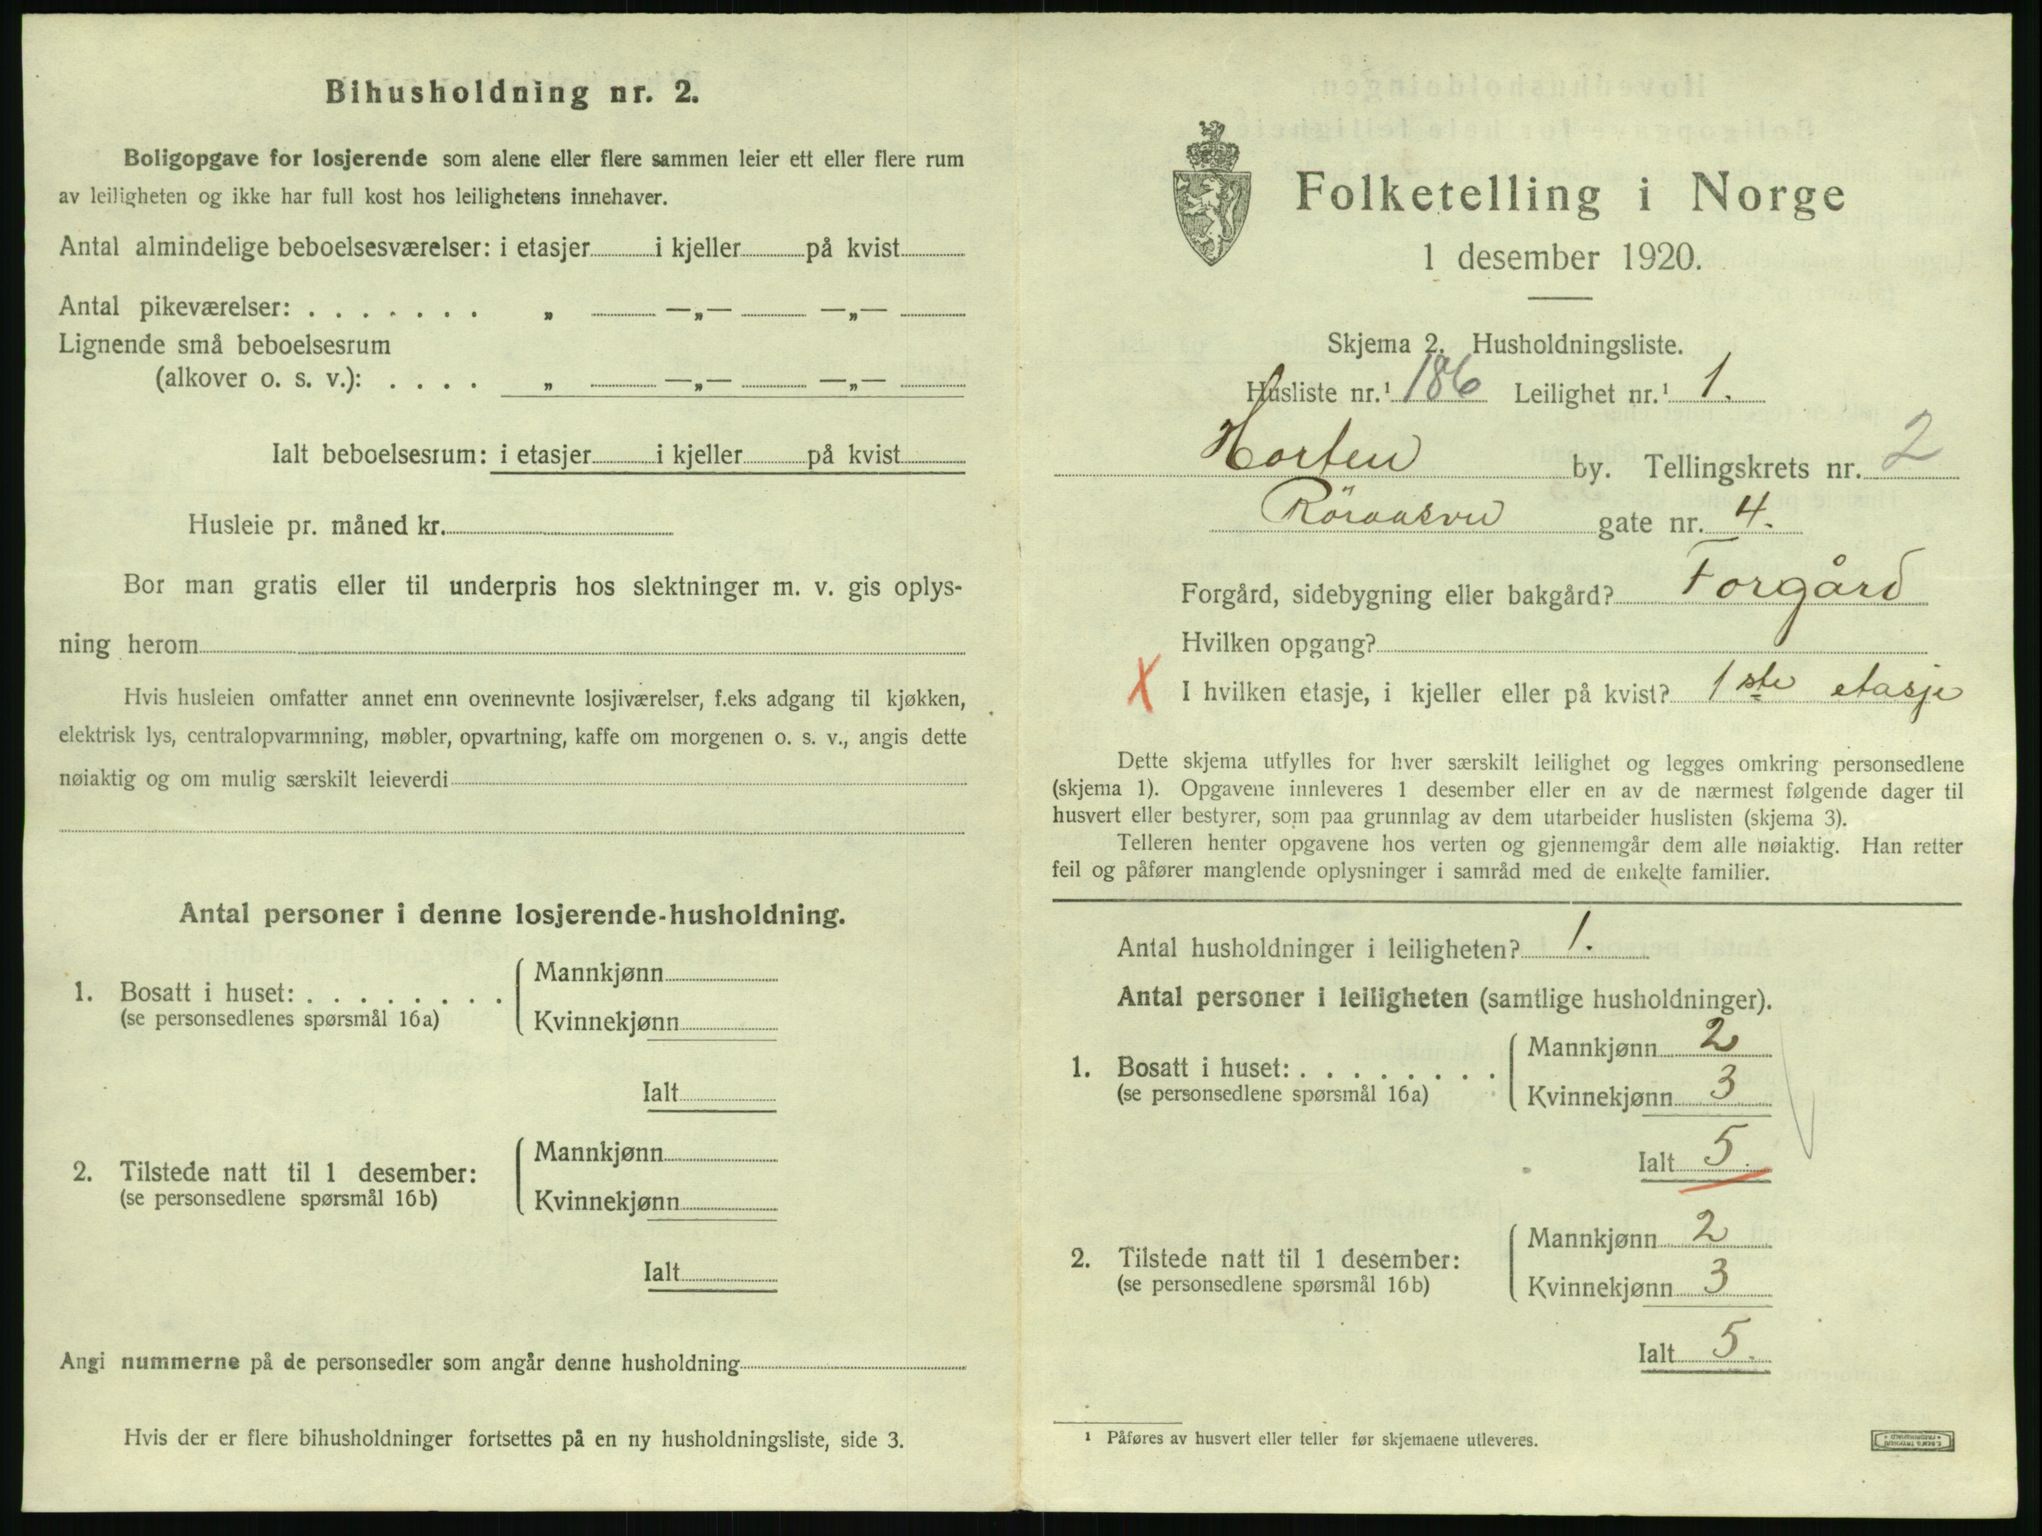 Bihusholdning nr. 2.
Boligopgave for losjerende som alene eller flere sammen leier ett eller flere rum
av leiligheten og ikke har full kost hos leilighetens innehaver.
Antal almindelige beboelsesværelser: i etasjer i kjeller på kvist
Antal pikeværelser: . . . . . . . „ —„— —„—
Lignende små beboelsesrum
(alkover o. s. v.): . . . . „ —„— —„—
Ialt beboelsesrum: i etasjer i kjeller på kvist
Husleie pr. måned kr.
Bor man gratis eller til underpris hos slektninger m. v. gis oplys-
ning herom
Hvis husleien omfatter annet enn ovennevnte losjiværelser, f.eks adgang til kjøkken,
elektrisk lys, centralopvarmning, møbler, opvartning, kaffe om morgenen o. s. v., angis dette
nøiaktig og om mulig særskilt leieverdi
Antal personer i denne losjerende-husholdning.
1. Bosatt i huset: . . . . . . . .
(se personsedlenes spørsmål 16a)
Mannkjønn
Kvinnekjønn
Ialt
2. Tilstede natt til 1 desember:
(se personsedlene spørsmål 16b)
Mannkjønn
Kvinnekjønn
Ialt
Angi nummerne på de personsedler som angår denne husholdning
Hvis der er flere bihusholdninger fortsettes på en ny husholdningsliste, side 3.
Folketelling i Norge
1 desember 1920.
Skjema 2. Husholdningsliste.
Husliste nr.¹ 186 Leilighet nr.¹ 1.
Horten by. Tellingskrets nr. 2
gate nr. 4.
Forgård, sidebygning eller bakgård? Forgård
Hvilken opgang?
X I hvilken etasje, i kjeller eller på kvist? 1ste etasje
Dette skjema utfylles for hver særskilt leilighet og legges omkring personsedlene
(skjema 1). Opgavene innleveres 1 desember eller en av de nærmest følgende dager til
husvert eller bestyrer, som paa grunnlag av dem utarbeider huslisten (skjema 3).
Telleren henter opgavene hos verten og gjennemgår dem alle nøiaktig. Han retter
feil og påfører manglende oplysninger i samråd med de enkelte familier.
Antal husholdninger i leiligheten? 1.
Antal personer i leiligheten (samtlige husholdninger).
1. Bosatt i huset: . . . . . . . .
(se personsedlene spørsmål 16a)
Mannkjønn 2
Kvinnekjønn 3
Ialt 5
2. Tilstede natt til 1 desember:
(se personsedlene spørsmål 16b)
Mannkjønn 2
Kvinnekjønn 3
Ialt 5.
¹ Påføres av husvert eller teller før skjemaene utleveres.